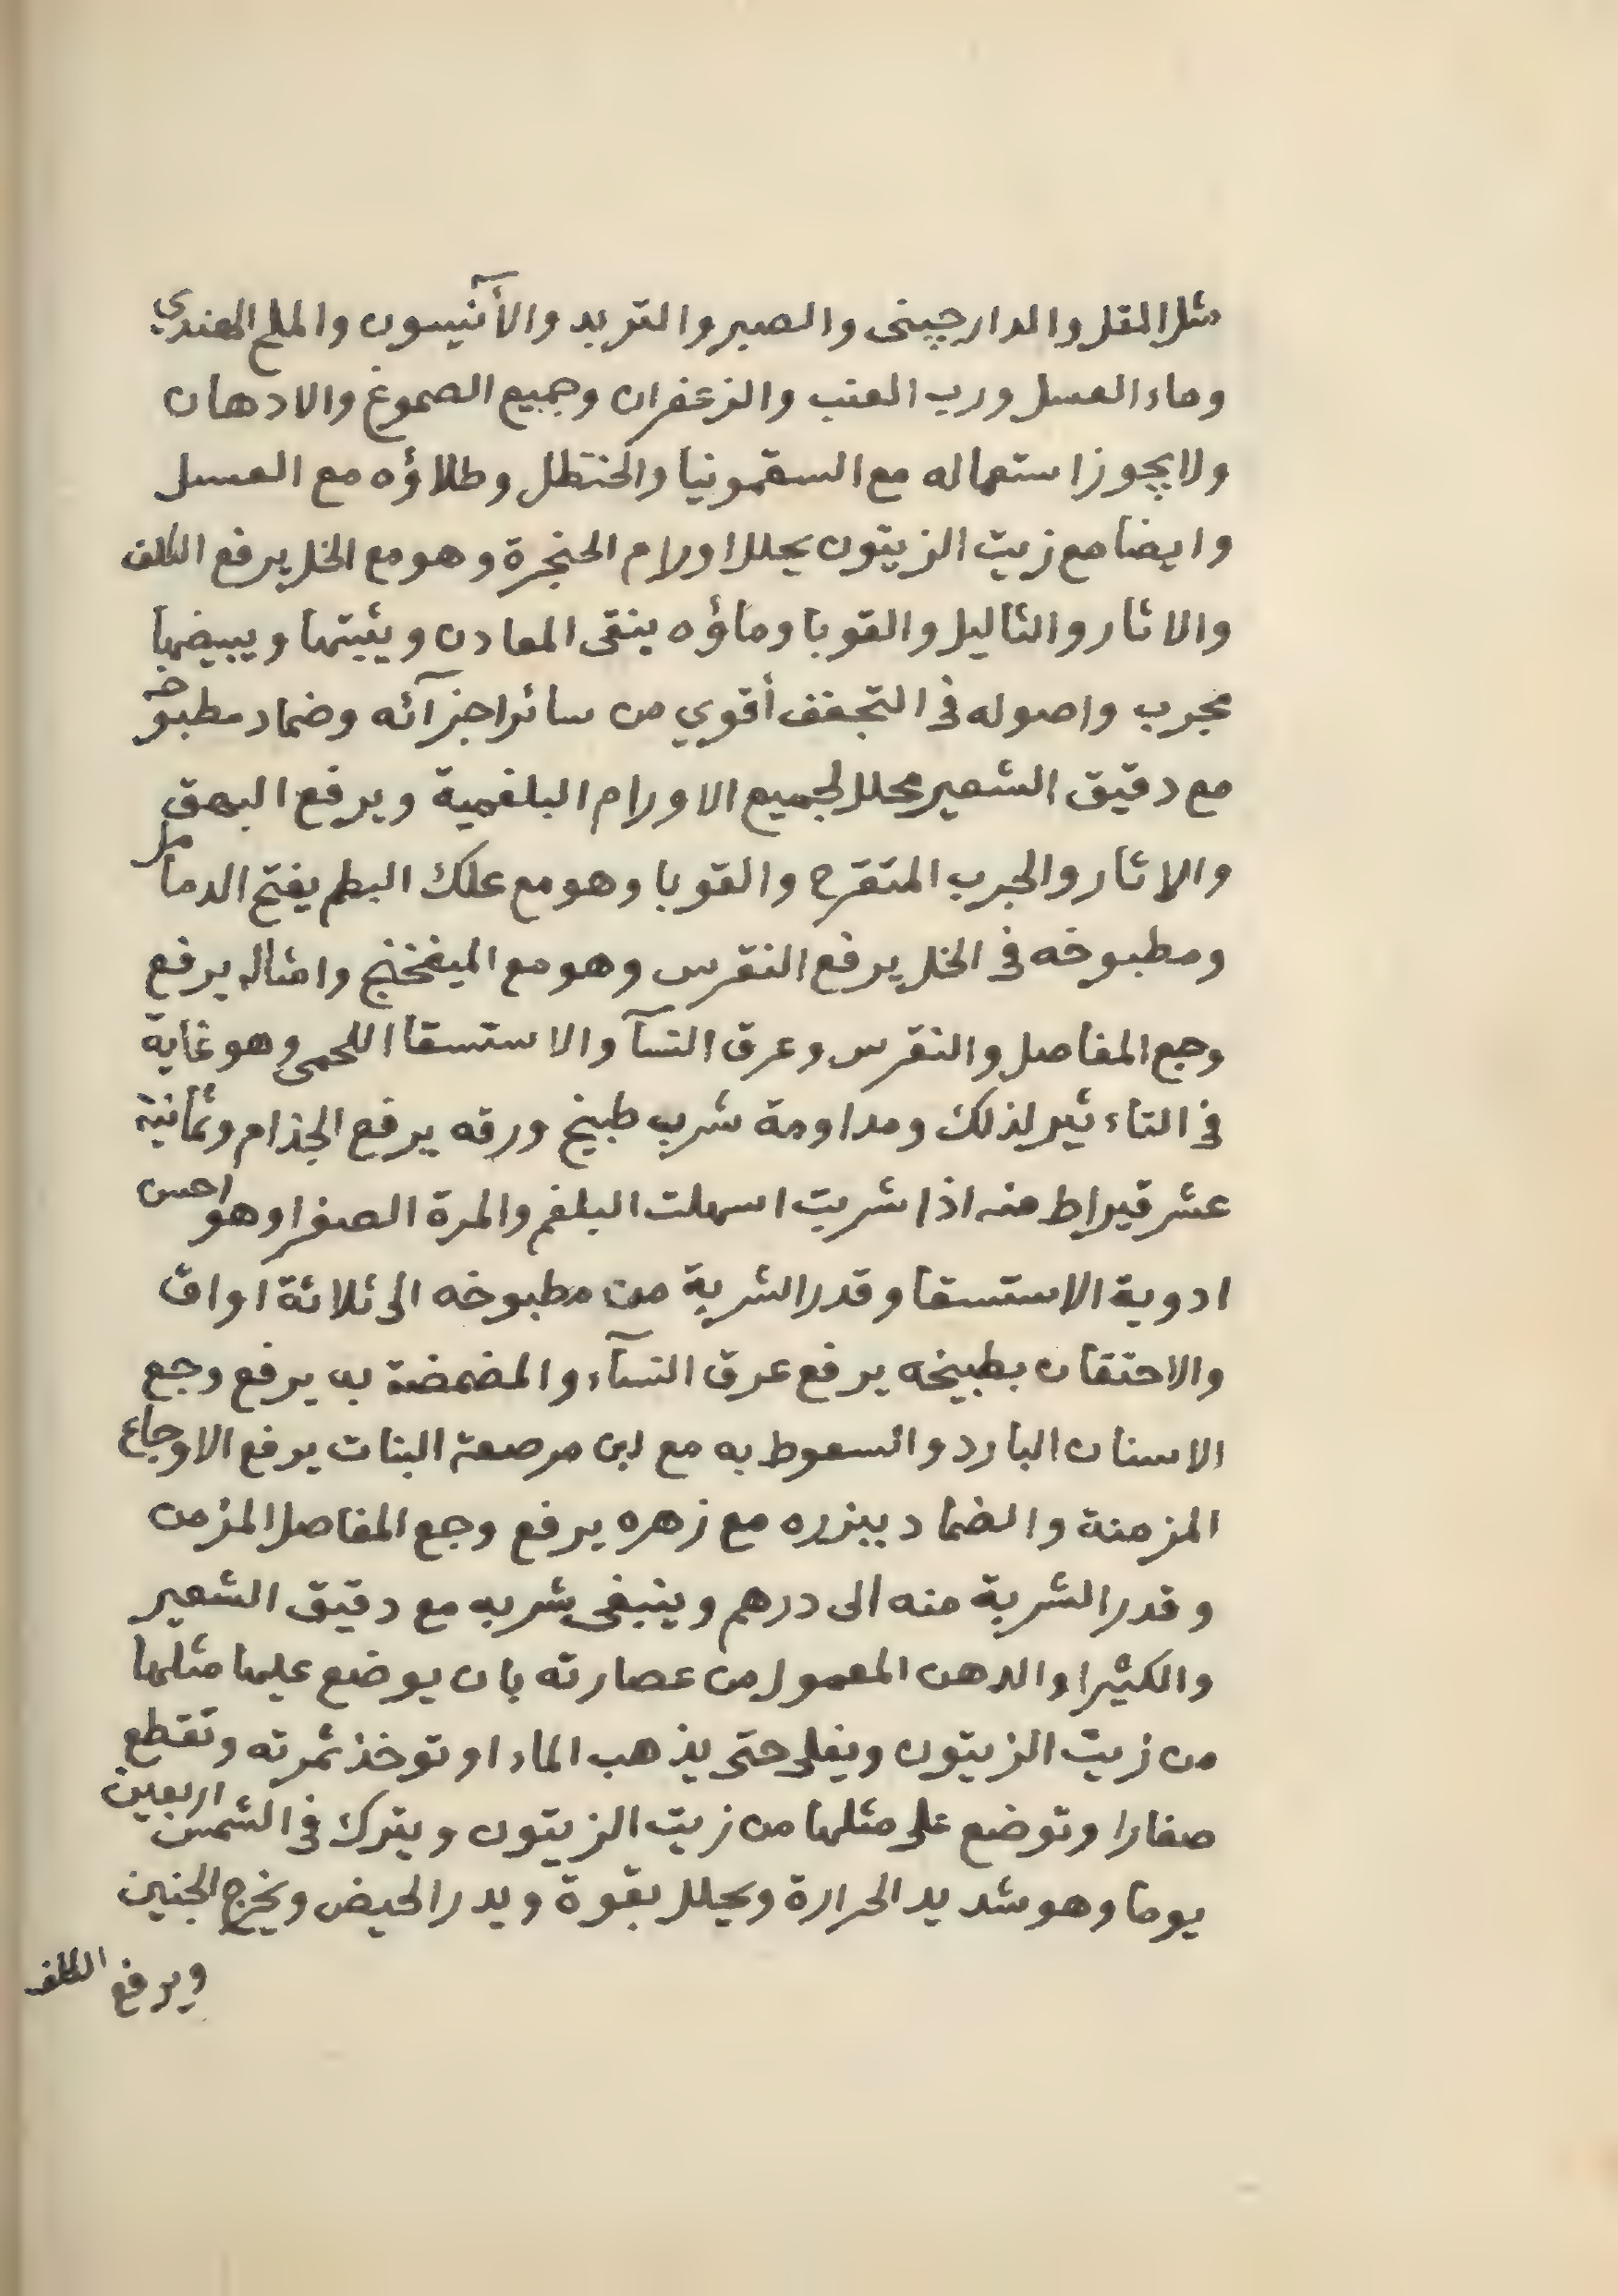 مثل المقل والدارچينى والصبر والتربد والأنيسون والملح الهندي
وماء العسل ورب العنب والزعفران وجميع الصموغ والادهان
ولا يجوز استعماله مع السقمونيا والحنظل وطلاؤه مع العسل
وايضا مع زيت الزيتون يحلل اورام الحنجرة وهو مع الخل يرفع الكلف
والاثار والثاليل والقوبا وماؤه ينقى المعادن ويثبتها ويبيضها
مجرب واصوله فى التجفف أقوي من سائر اجزآئه وضماد مطبوخه
مع دقيق الشعير محلل لجميع الاورام البلغمية ويرفع البهق
والاثار والجرب المتقرح والقوبا وهو مع علك البطم يفتح الدمامل
ومطبوخه فى الخل يرفع النقرس وهو مع الميفختج وامثاله يرفع
وجع المفاصل والنقرس وعرق النسآ والاستسقا اللحمى وهو غاية
فى التاءثير لذلك ومداومة شرب طبيخ ورقه يرفع الجذام وثمانية
عشر قيراط منه اذا شربت اسهلت البلغم والمرة الصفرا وهو احسن
ادوية الاستسقا وقدر الشربة من مطبوخه الى ثلاثة اواق
والاحتقان بطبيخه يرفع عرق النسآء والمضمضة به يرفع وجع
الاسنان البارد والسعوط به مع لبن مرضعة البنات يرفع الاوجاع
المزمنة والضماد ببزره مع زهره يرفع وجع المفاصل المزمن
وقدر الشربة منه الى درهم وينبغى شربه مع دقيق الشعير
والكثيرا والدهن المعمول من عصارته بان يوضع عليها مثلها
من زيت الزيتون ويغلى حتى يذهب الماء او توخذ ثمرته وتقطع
صغارا وتوضع على مثلها من زيت الزيتون ويترك فى الشمس اربعين
يوما وهو شديد الحرارة ويحلل بقوة ويدر الحيض ويخرج الجنين
ويرفع الكلف